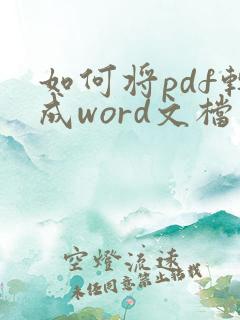 如何将pdf轉
成word文檔
空燈流遠
未任同意禁止轉載